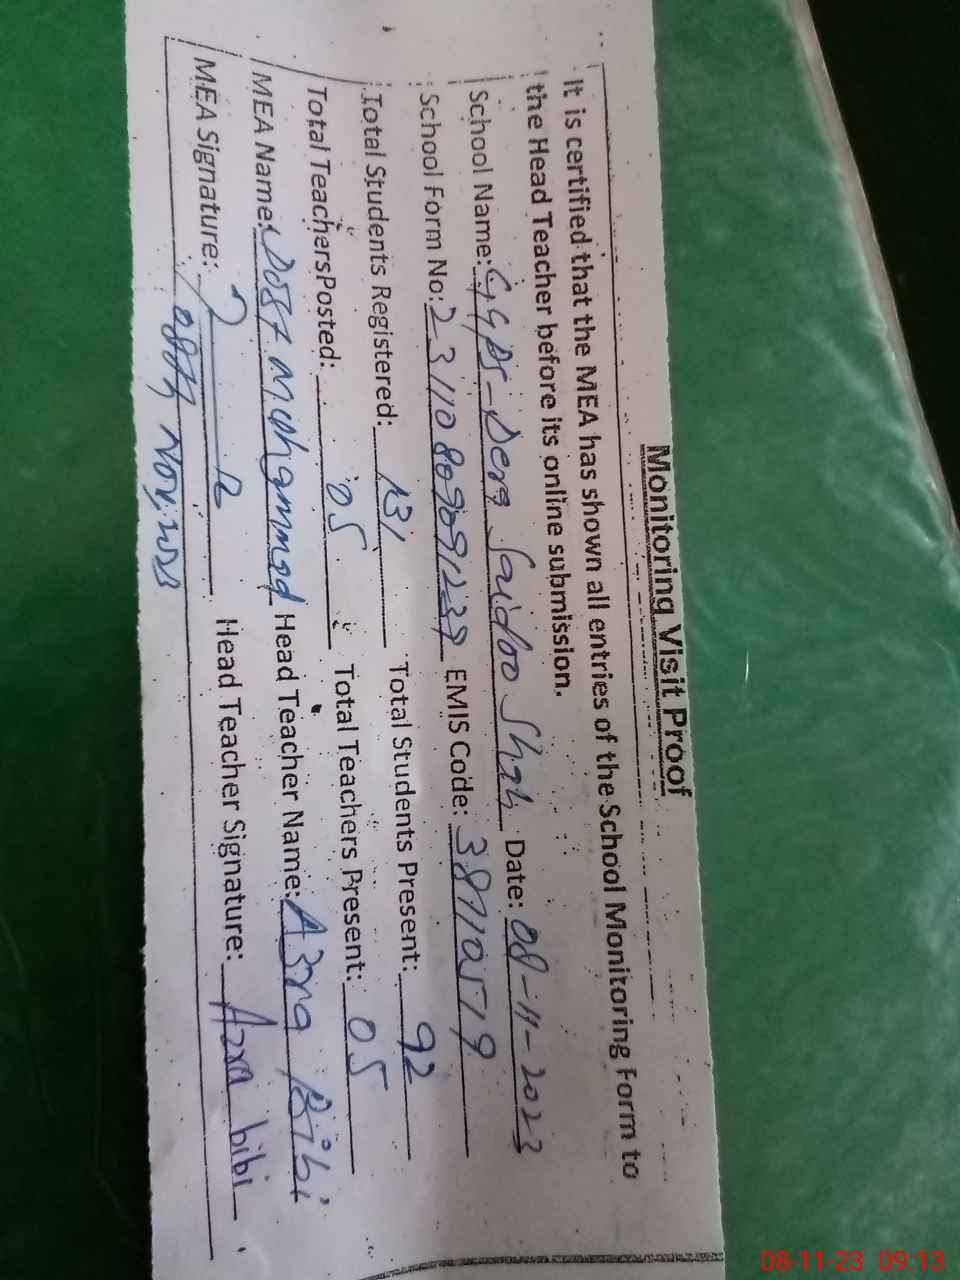 Monitoring Visit Proof
It is certified that the MEA has shown all entries of the School Monitoring Form to
the Head Teacher before its online submission.
School Name: GGPS-Dera Saidoo Shah Date: 08-11-2023
School Form No: EMIS Code: 38710579
Total Students Registered: 131 Total Students Present: 92
Total TeachersPosted: 05 Total Teachers Present: 05
MEA Name: Dost Muhammad Head Teacher Name: Azra Bibi
MEA Signature: Head Teacher Signature: Azra bibi
08th Nov,
08-11-23 09:13